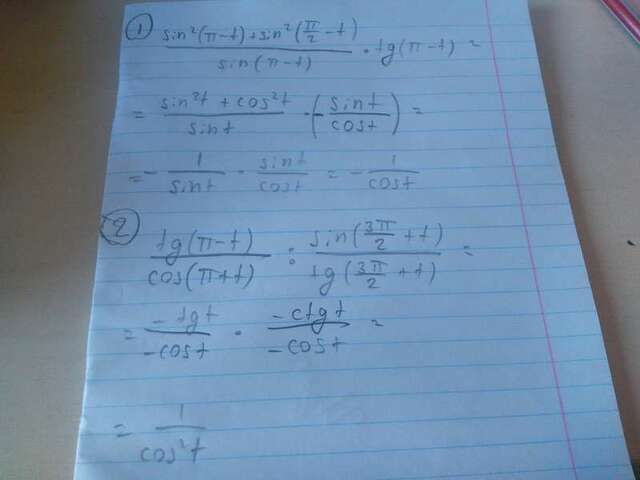 1 sin²(π-t)+sin²(π/2-t)/sin(π-t) · tg(π-t) =
= sin²t + cos²t/sint · (-sint/cost) =
= - 1/sint · sint/cost = - 1/cost
2 tg(π-t)/cos(π+t) : sin(3π/2+t)/tg(3π/2+t) =
= -tgt/-cost · -ctgt/-cost =
= 1/cos²t